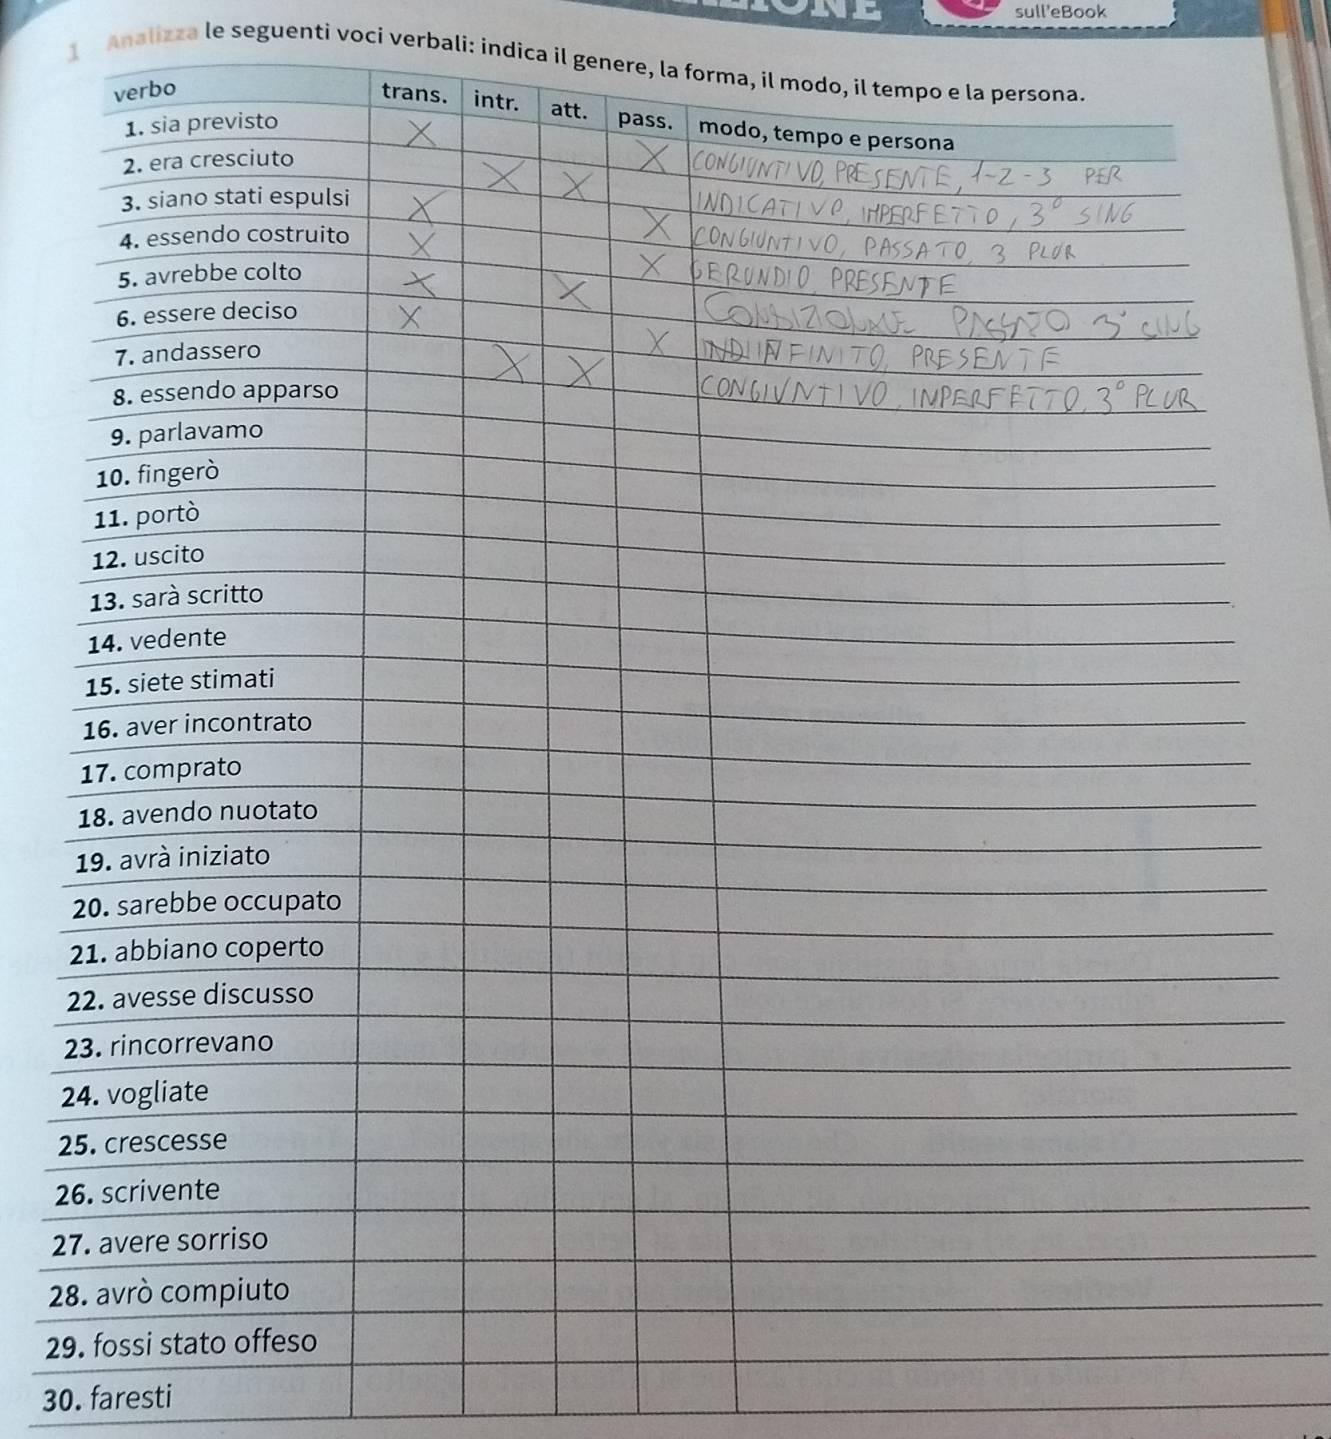 ZIONE
sull'eBook
1 Analizza le seguenti voci verbali: indica il genere, la forma, il modo, il tempo e la persona.
verbo trans. intr. att. pass. modo, tempo e persona
1. sia previsto X X CONGIUNTIVO, PRESENTE, 1-2-3 PER
2. era cresciuto X X INDICATIVO, IMPERFETTO, 3° SING
3. siano stati espulsi X X CONGIUNTIVO, PASSATO, 3 PLUR
4. essendo costruito X X GERUNDIO PRESENTE
5. avrebbe colto X X CONDIZIONALE PASSATO 3° SING
6. essere deciso X X INFINITO, PRESENTE
7. andassero X X CONGIUNTIVO, INPERFETTO, 3° PLUR
8. essendo apparso
9. parlavamo
10. fingerò
11. portò
12. uscito
13. sarà scritto
14. vedente
15. siete stimati
16. aver incontrato
17. comprato
18. avendo nuotato
19. avrà iniziato
20. sarebbe occupato
21. abbiano coperto
22. avesse discusso
23. rincorrevano
24. vogliate
25. crescesse
26. scrivente
27. avere sorriso
28. avrò compiuto
29. fossi stato offeso
30. faresti